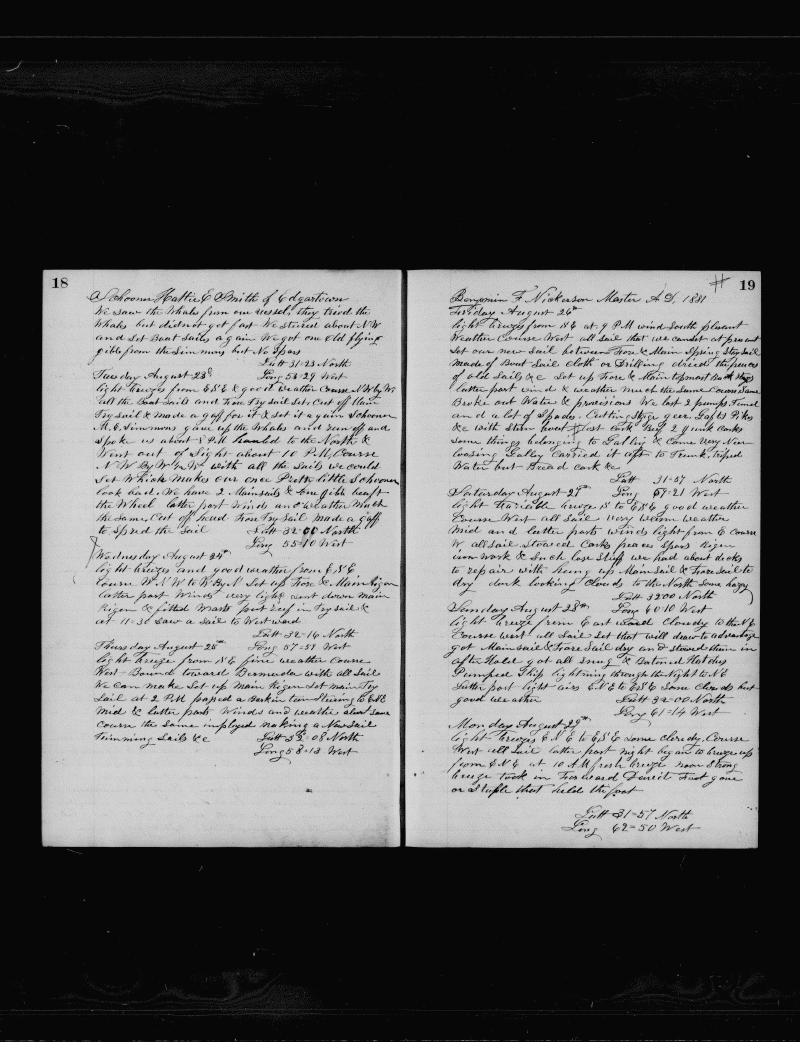 18
Schooner Hattie E Smith of Edgartown
We saw the Whales from our vessel, they tried the
Whales but did not get fast We steered about NW
and Set Boat Sails again We got one old flying
gibb from the Simmons but No Spars
Latt 31-23 North
Tuesday August 23d Long 53-29 West
light breezes from ESE & good weather Course NW by W
all the Boat Sails and Fore Try sail Set. Cut off Main
Try Sail & made a gaff for it & Set it again Schooner
M.E. Simmons gave up the Whales and run off and
Spoke us about 1 PM headed to the North &
Went out of Sight about 10 P.M, Course
N W By W & W with all the Sails we could
Set Which makes our once Pretty little Schooner
look bad. We have 2 Mainsails & one gibb beaft
the Wheel latter part Winds and weather Much
the Same, Cut off head Fore Try Sail made a gaff
to Spred the Sail Latt 32-00 North
Long 55-10 West
Wednesday August 24th
light breezes and good weather from ENE
Course W N W to W By N Set up Fore & Main rigen
latter part Winds very light sent down main
Rigen & fitted Warts put reef in Try sail &
at 11-30 Saw a Sail to Westward
Latt 32-16 North
Thursday August 25th Long 57-51 West
light breeze from NE fine weather Course
West Bound toward Bermuda with all Sail
We can make Set up main Rigen Set main Try
Sail at 2 P.M. passed a Barkentine Stering to ESE
Mid & latter parts Winds and weather about Same
Course the Same imployed making a New Sail
Trimming Sails &c Latt 32-08 North
Long 58-13 West
19
Benjamin F. Nickerson Master A D, 1881
Friday August 26th
light breezes from NE at 9 PM wind South plesant
Weather Course West all Sail that we can set at present
Set our new Sail between Fore & Main Spring Stay Sail
Made of Boat Sail cloth or Drilling dried the peaces
of old Sails &c Set up Fore & Main topmast Back Stays
latter part wind & weather much the Same Course Same
Broke out Water & provisions We lost 2 pumps Tined
and a lot of Spades. Cutting Stage geer Gafts Pikes
&c with Stern boat & lost Cask Beef 2 Junk Casks
Some things belonging to Galley & Came very Near
loosing Galley Carried it aft to Trunk, triped
Water but Bread Cask &c
Latt 31-57 North
Saturday August 27th Long 59-21 West
light breeze N to ESE good weather
Course West all Sail very warm weather
Mid and latter parts winds light from E course
W all Sail Stowed Casks peaces Spars Rigen
iron work & Such lose Stuff we had about decks
to repair with hung up Main Sail & Fore Sail to
dry dark looking Clouds to the North Some hazzy
Latt 32 00 North
Sunday August 28th Long 60 10 West
light breeze from East Cloudy to the NE
Course west all Sail Set that will draw to advantage
got Main Sail & Fore Sail dry and Stowed them in
after Hold got all Snug & Batened Hatches
Pumped Ship lightning through the Night to NE
Latter part light airs ENE to ESE Some Clouds but
good weather Latt 32-00 North
Long 61-14 West
Monday August 29th
light breezes E N E to ESE Some cloudy. Course
West all Sail latter part night began to breeze up
from E N E at 10 A.M fresh breeze noon Strong
breeze took in Foreward Foot gave
or Staple that held the foot
Latt 31-57 North
Long 62-50 West